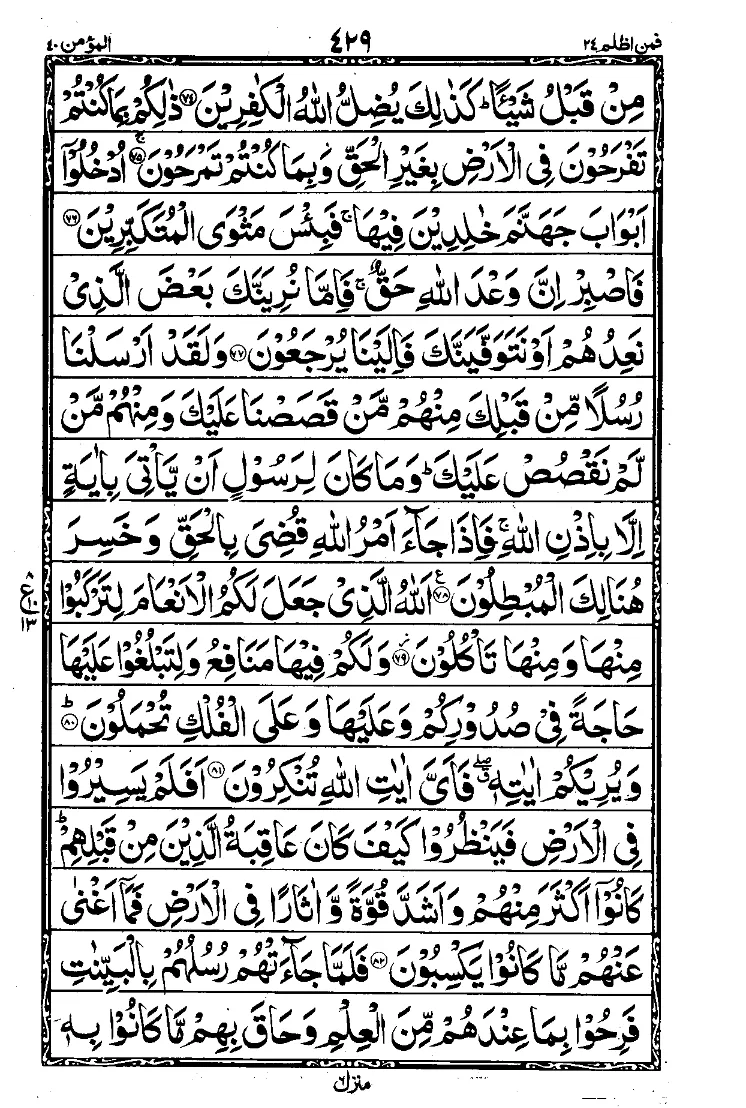 فمن اظلم ٢٤ ٤٢٩ المؤمن ٤٠
مِنْ قَبْلُ شَيْـًٔا ؕ كَذٰلِكَ يُضِلُّ اللّٰهُ الْكٰفِرِيْنَ ﴿۷۴﴾ ذٰلِكُمْ بِمَا كُنْتُمْ
تَفْرَحُوْنَ فِی الْاَرْضِ بِغَيْرِ الْحَقِّ وَبِمَا كُنْتُمْ تَمْرَحُوْنَ ۚ﴿۷۵﴾ اُدْخُلُوْۤا
اَبْوَابَ جَهَنَّمَ خٰلِدِيْنَ فِيْهَا ۚ فَبِئْسَ مَثْوَی الْمُتَكَبِّرِيْنَ ﴿۷۶﴾
فَاصْبِرْ اِنَّ وَعْدَ اللّٰهِ حَقٌّ ۚ فَاِمَّا نُرِيَنَّكَ بَعْضَ الَّذِیْ
نَعِدُهُمْ اَوْ نَتَوَفَّيَنَّكَ فَاِلَيْنَا يُرْجَعُوْنَ ﴿۷۷﴾ وَلَقَدْ اَرْسَلْنَا
رُسُلًا مِّنْ قَبْلِكَ مِنْهُمْ مَّنْ قَصَصْنَا عَلَيْكَ وَمِنْهُمْ مَّنْ
لَّمْ نَقْصُصْ عَلَيْكَ ؕ وَمَا كَانَ لِرَسُوْلٍ اَنْ يَّاْتِیَ بِاٰيَةٍ
اِلَّا بِاِذْنِ اللّٰهِ ۚ فَاِذَا جَآءَ اَمْرُ اللّٰهِ قُضِیَ بِالْحَقِّ وَخَسِرَ
هُنَالِكَ الْمُبْطِلُوْنَ ﴿۷۸﴾ ع اَللّٰهُ الَّذِیْ جَعَلَ لَكُمُ الْاَنْعَامَ لِتَرْكَبُوْا
٨ ع ١٠ ١٣
مِنْهَا وَمِنْهَا تَاْكُلُوْنَ ؗ﴿۷۹﴾ وَلَكُمْ فِيْهَا مَنَافِعُ وَلِتَبْلُغُوْا عَلَيْهَا
حَاجَةً فِیْ صُدُوْرِكُمْ وَعَلَيْهَا وَعَلَی الْفُلْكِ تُحْمَلُوْنَ ؕ﴿۸۰﴾
وَيُرِيْكُمْ اٰيٰتِهٖ ۖۗ فَاَیَّ اٰيٰتِ اللّٰهِ تُنْكِرُوْنَ ﴿۸۱﴾ اَفَلَمْ يَسِيْرُوْا
فِی الْاَرْضِ فَيَنْظُرُوْا كَيْفَ كَانَ عَاقِبَةُ الَّذِيْنَ مِنْ قَبْلِهِمْ ؕ
كَانُوْۤا اَكْثَرَ مِنْهُمْ وَاَشَدَّ قُوَّةً وَّاٰثَارًا فِی الْاَرْضِ فَمَاۤ اَغْنٰی
عَنْهُمْ مَّا كَانُوْا يَكْسِبُوْنَ ﴿۸۲﴾ فَلَمَّا جَآءَتْهُمْ رُسُلُهُمْ بِالْبَيِّنٰتِ
فَرِحُوْا بِمَا عِنْدَهُمْ مِّنَ الْعِلْمِ وَحَاقَ بِهِمْ مَّا كَانُوْا بِهٖ
منزل ٦